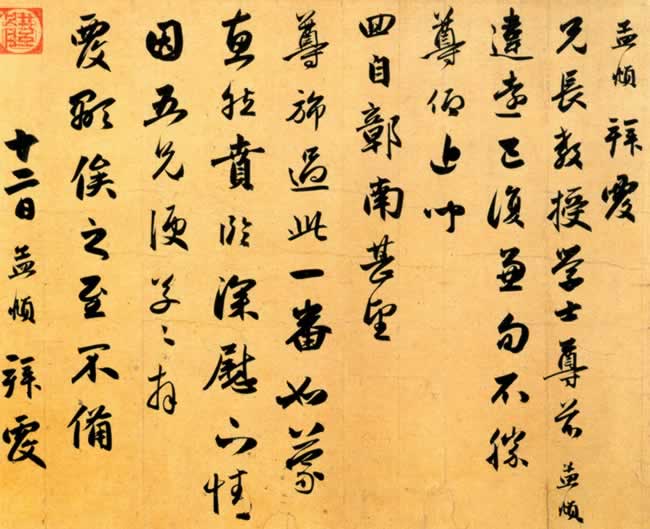 孟頫 拜覆
兄長教授学士尊前 孟頫
違遠已復兼旬不勝
尊仰
回自鄣南甚望
尊旆過此一番如蒙
惠然賁臨深慰下情
因五兄便草草拜
覆顒俟之至不備
十二日 孟頫 拜覆